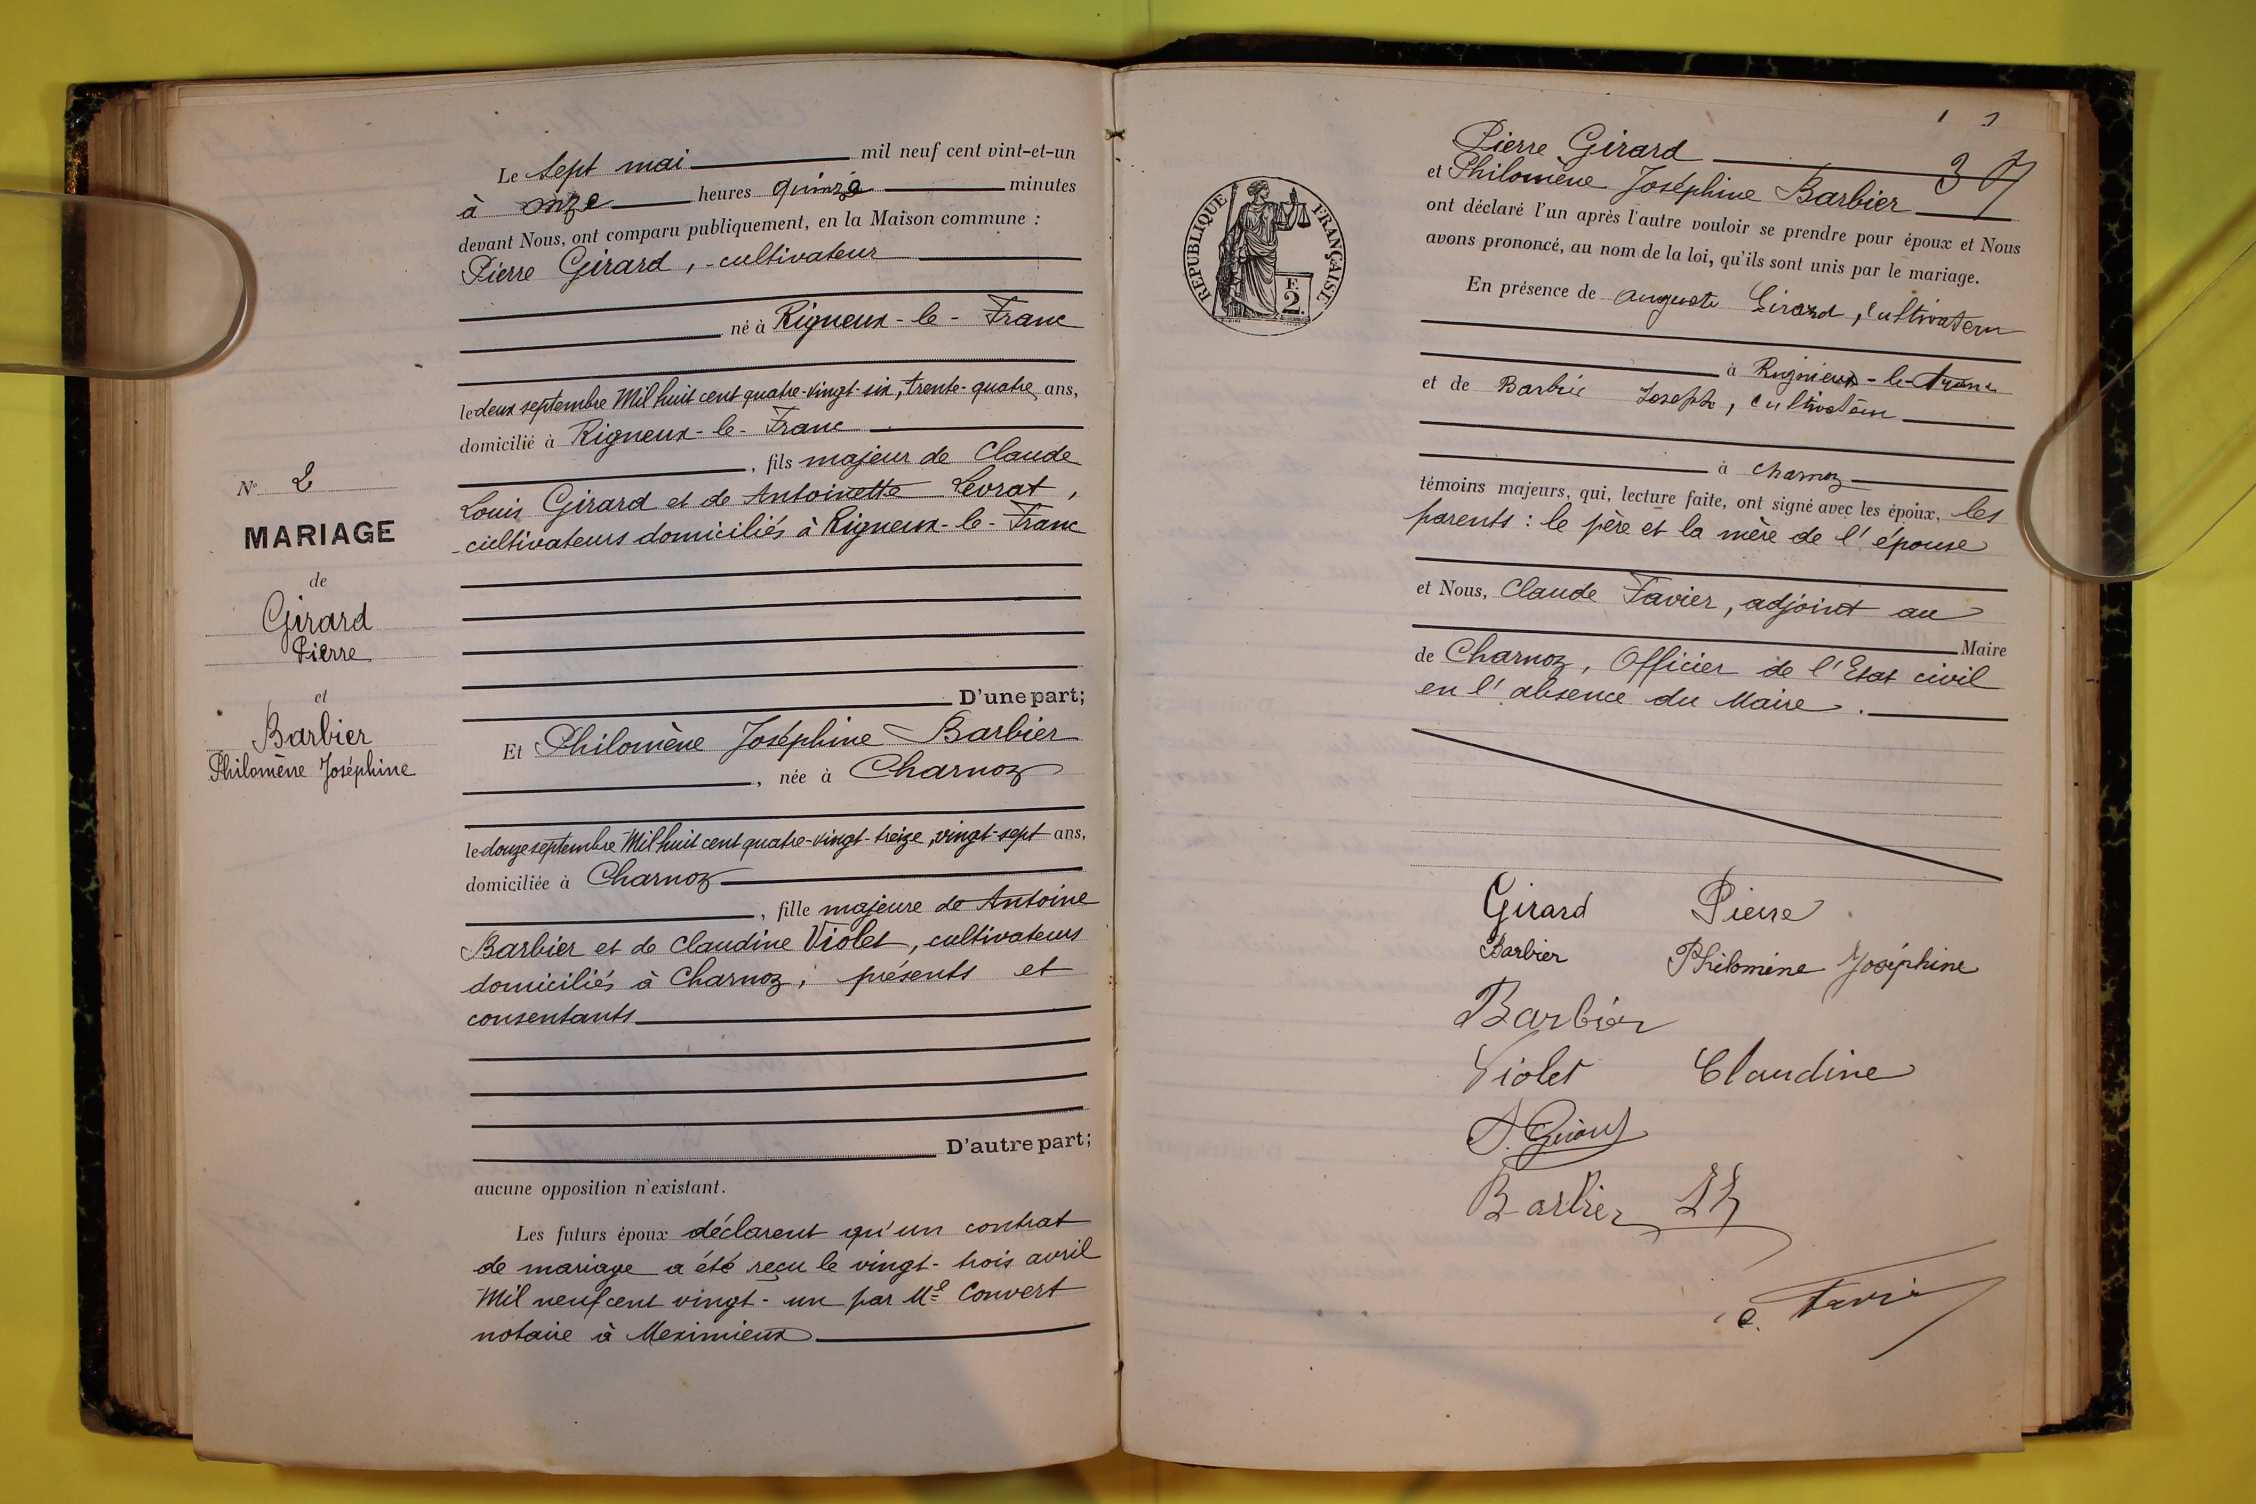 Le sept mai mil neuf cent vint-et-un
à onze heures quinze minutes
devant Nous, ont comparu publiquement, en la Maison commune :
Pierre Girard, cultivateur
né à Rigneux-le-Franc
le deux septembre Mil huit cent quatre-vingt-six, trente-quatre ans,
domicilié à Rigneux-le-Franc
, fils majeur de Claude
Louis Girard et de Antoinette Levrat,
cultivateurs domiciliés à Rigneux-le-Franc
D'une part;
Et Philomène Joséphine Barbier
, née à Charnoz
le douze septembre Mil huit cent quatre-vingt-treize, vingt-sept ans,
domiciliée à Charnoz
, fille majeure de Antoine
Barbier et de Claudine Violet, cultivateurs
domiciliés à Charnoz, présents et
consentants
D'autre part;
aucune opposition n'existant.
Les futurs époux déclarent qu'un contrat
de mariage a été reçu le vingt-trois avril
Mil neuf cent vingt-un par Me Convert
notaire à Meximieux
N° 2
MARIAGE
de
Girard
Pierre
et
Barbier
Philomène Joséphine
Pierre Girard
et Philomène Joséphine Barbier
ont déclaré l'un après l'autre vouloir se prendre pour époux et Nous
avons prononcé, au nom de la loi, qu'ils sont unis par le mariage.
En présence de auguste Girard, cultivateur
à Rigneux-le-Franc
et de Barbier Joseph, cultivateur
à Charnoz
témoins majeurs, qui, lecture faite, ont signé avec les époux, les
parents : le père et la mère de l'épouse
et Nous, Claude Favier, adjoint au
Maire
de Charnoz, Officier de l'Etat civil
en l'absence du Maire.
RÉPUBLIQUE FRANÇAISE
F.
2.
Girard Pierre
Barbier Philomène Joséphine
Barbier
Violet Claudine
A. Girard
Barbier
c. Favier